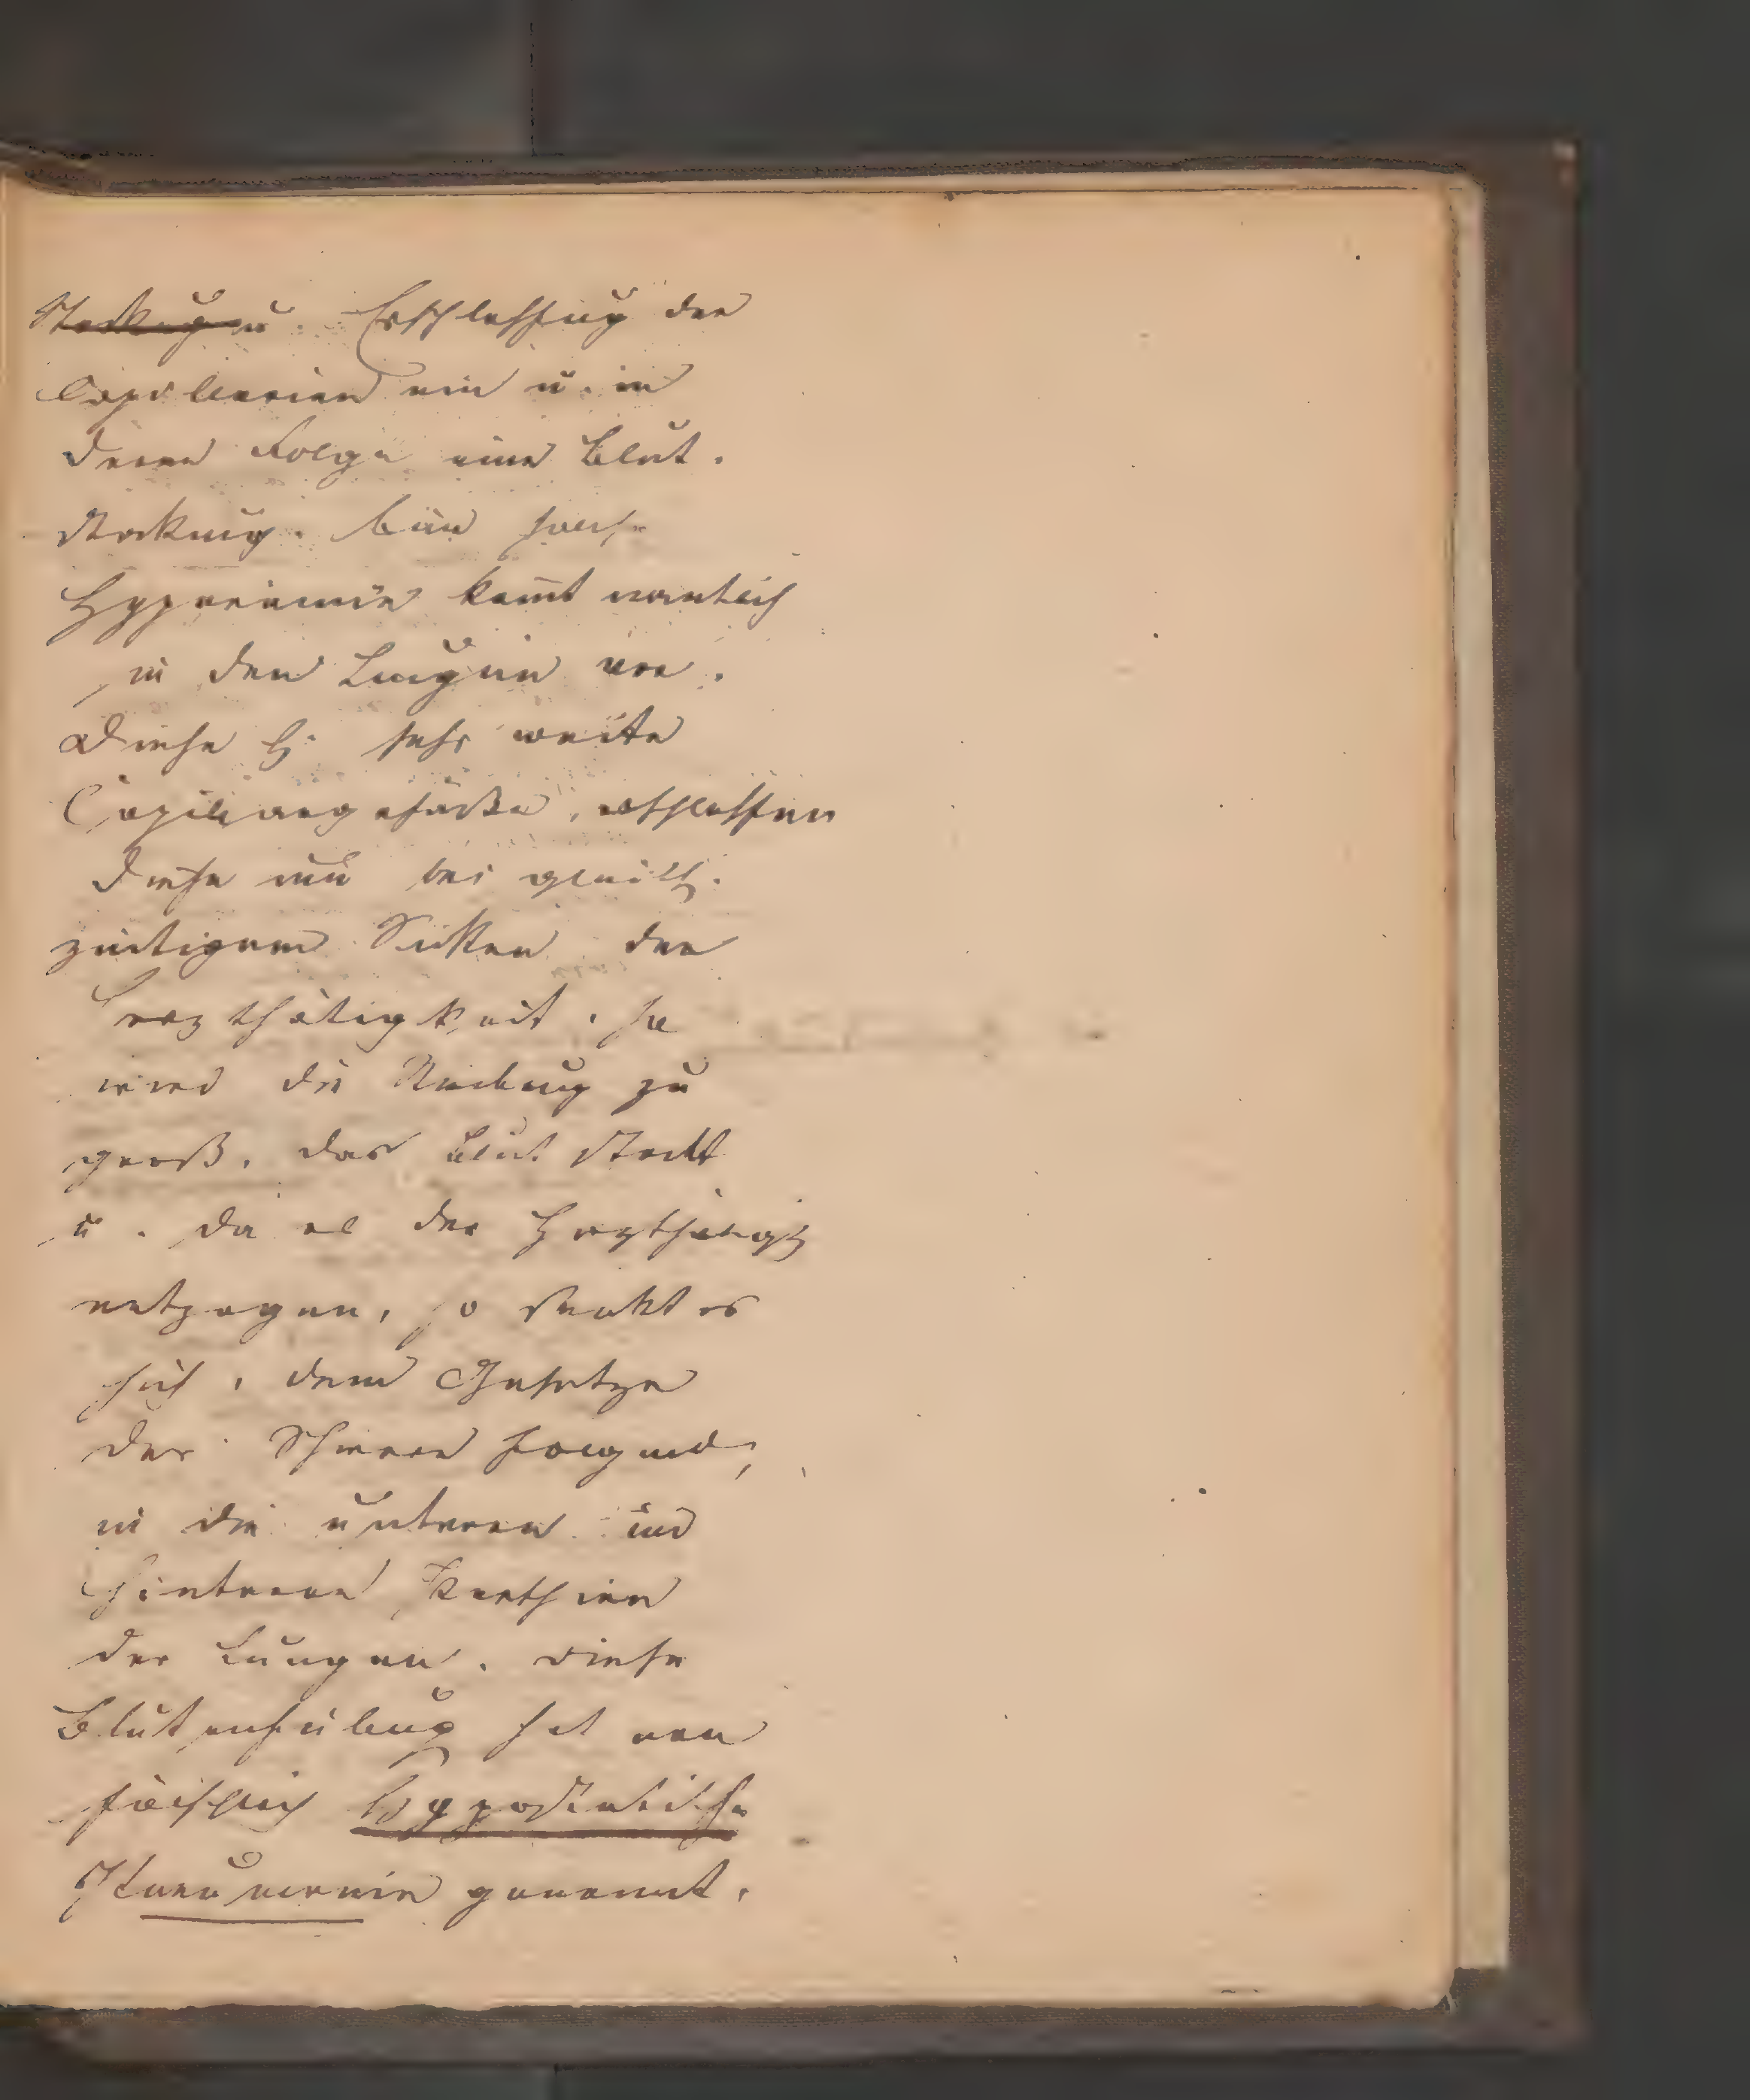 Stockung u. Erschlaffung der
Capillarien ein u. in
deren Folge eine Blut-
stockung. Eine solche
Hyperämie kommt namentlich
in den Lungen vor.
Diese h. sehr weite
Capillargefäße, erschlaffen
diese nun bei gleich-
zeitigem Sinken der
Herzthätigkeit, so
wird die Reibung zu
groß, das Blut stockt
u. da es der Herzthätigk
entzogen, so senkt es
sich, dem Gesetze
der Schwere folgend,
in die unteren und
hinteren Parthien
der Lungen. Diese
Blutanhäufung hat man
fälschlich hypostatische
Pneumonie genannt.